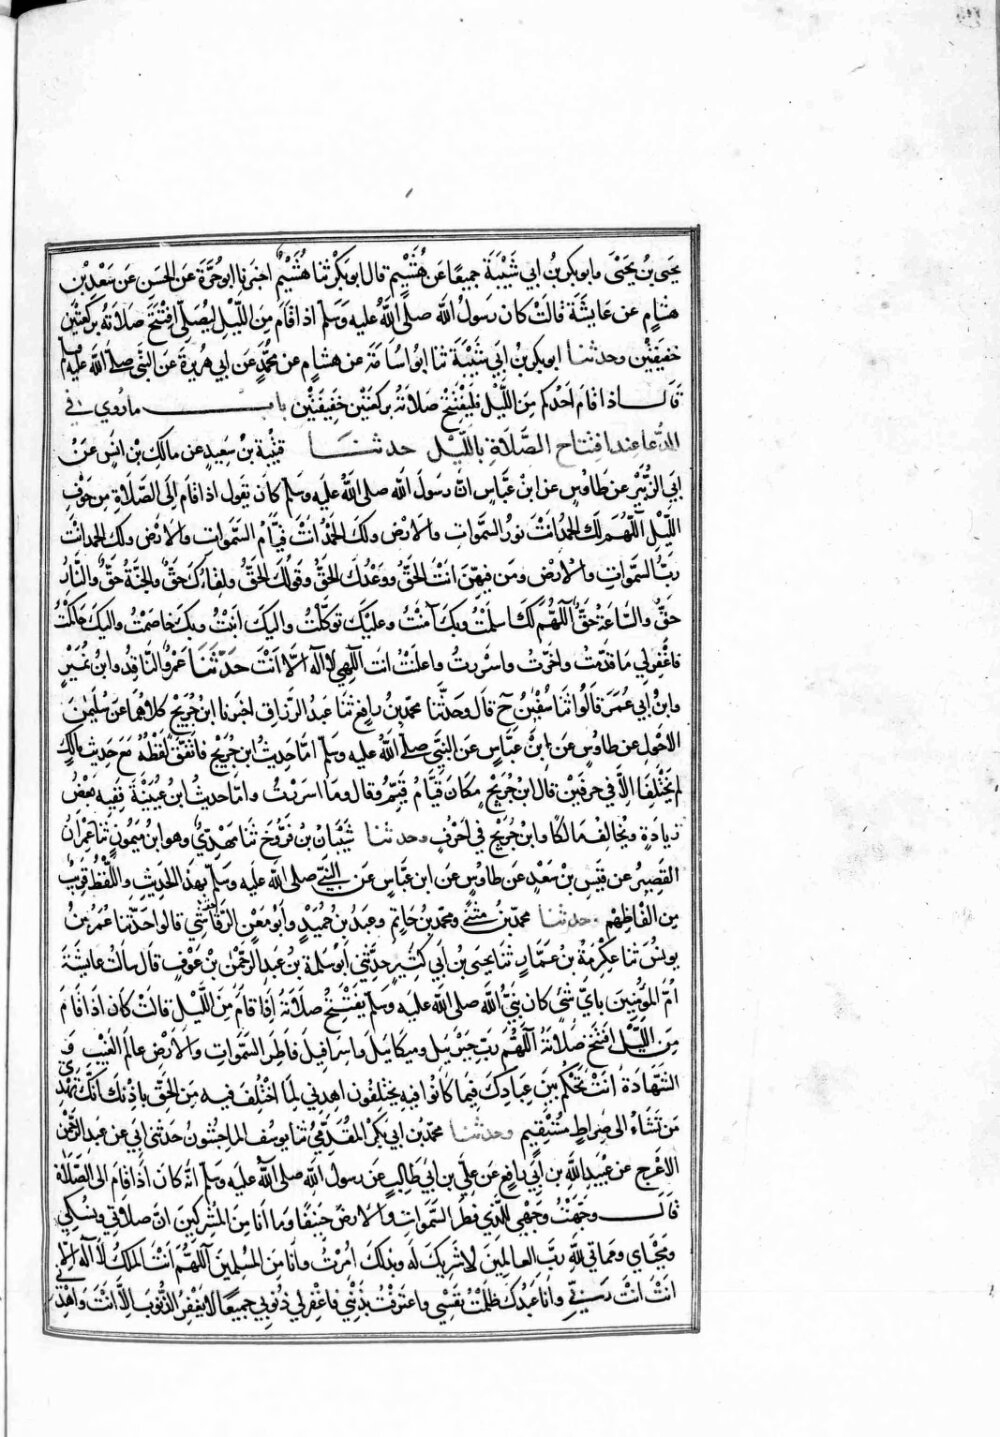 يحيى بن يحيى وابو بكر بن ابي شيبة جميعا عن هشيم قال ابو بكر ثنا هشيم اخبرنا ابو حرة عن الحسن عن سعد بن
هشام عن عايشة قالت كان رسول الله صلى الله عليه وسلم اذا قام من الليل ليصلي افتتح صلاته بركعتين
خفيفتين وحدثنا ابو بكر بن ابي شيبة ثنا ابو اسامة عن هشام عن محمد عن ابي هريرة عن النبي صلى الله عليه وسلم
قال اذا قام احدكم من الليل فليفتتح صلاته بركعتين خفيفتين باب ما روي في
الدعا عند افتتاح الصلاة بالليل حدثنا قتيبة بن سعيد عن مالك بن انس عن
ابي الزبير عن طاوس عن ابن عباس ان رسول الله صلى الله عليه وسلم كان يقول اذا قام الى الصلاة من جوف
الليل اللهم لك الحمد انت نور السموات والارض ولك الحمد انت قيام السموات والارض ولك الحمد انت
رب السموات والارض ومن فيهن انت الحق ووعدك الحق وقولك الحق ولقاءك حق والجنة حق والنار
حق والساعة حق اللهم لك اسلمت وبك آمنت وعليك توكلت واليك انبت وبك خاصمت واليك حاكمت
فاغفر لي ما قدمت واخرت واسررت واعلنت انت الهي لا اله الا انت حدثنا عمرو الناقد وابن نمير
وابن ابي عمر قالوا ثنا سفين ح قال وحدثنا محمد بن رافع ثنا عبد الرزاق اخبرنا ابن جريج كلاهما عن سليمن
الاحول عن طاوس عن ابن عباس عن النبي صلى الله عليه وسلم اما حديث ابن جريج فاتفق لفظه مع حديث مالك
لم يختلفا الا في حرفين قال ابن جريج مكان قيام قيم وقال وما اسررت واما حديث ابن عيينة ففيه بعض
زيادة ويخالف مالكا وابن جريج في احرف وحدثنا شيبان بن فروخ ثنا مهدي وهو ابن ميمون ثنا عمران
القصير عن قيس بن سعد عن طاوس عن ابن عباس عن النبي صلى الله عليه وسلم بهذا الحديث واللفظ قريب
من الفاظهم وحدثنا محمد بن مثنى ومحمد بن حاتم وعبد بن حميد وابو معن الرقاشي قالوا حدثنا عمر بن
يونس ثنا عكرمة بن عمار ثنا يحيى بن ابي كثير حدثني ابو سلمة بن عبد الرحمن بن عوف قال سالت عايشة
ام المؤمنين باي شئ كان نبي الله صلى الله عليه وسلم يفتتح صلاته اذا قام من الليل قالت كان اذا قام
من الليل افتتح صلاته اللهم رب جبريل وميكايل واسرافيل فاطر السموات والارض عالم الغيب و
الشهادة انت تحكم بين عبادك فيما كانوا فيه يختلفون اهدني لما اختلف فيه من الحق باذنك انك تهدي
من تشاء الى صراط مستقيم وحدثنا محمد بن ابي بكر المقدمي ثنا يوسف الماجشون حدثني ابي عن عبد الرحمن
الاعرج عن عبيد الله بن ابي رافع عن علي بن ابي طالب عن رسول الله صلى الله عليه وسلم انه كان اذا قام الى الصلاة
قال وجهت وجهي للذي فطر السموات والارض حنيفا وما انا من المشركين ان صلاتي ونسكي
ومحياي ومماتي لله رب العالمين لا شريك له وبذلك امرت وانا من المسلمين اللهم انت الملك لا اله الا
انت انت ربي وانا عبدك ظلمت نفسي واعترفت بذنبي فاغفر لي ذنوبي جميعا لا يغفر الذنوب الا انت واهدني